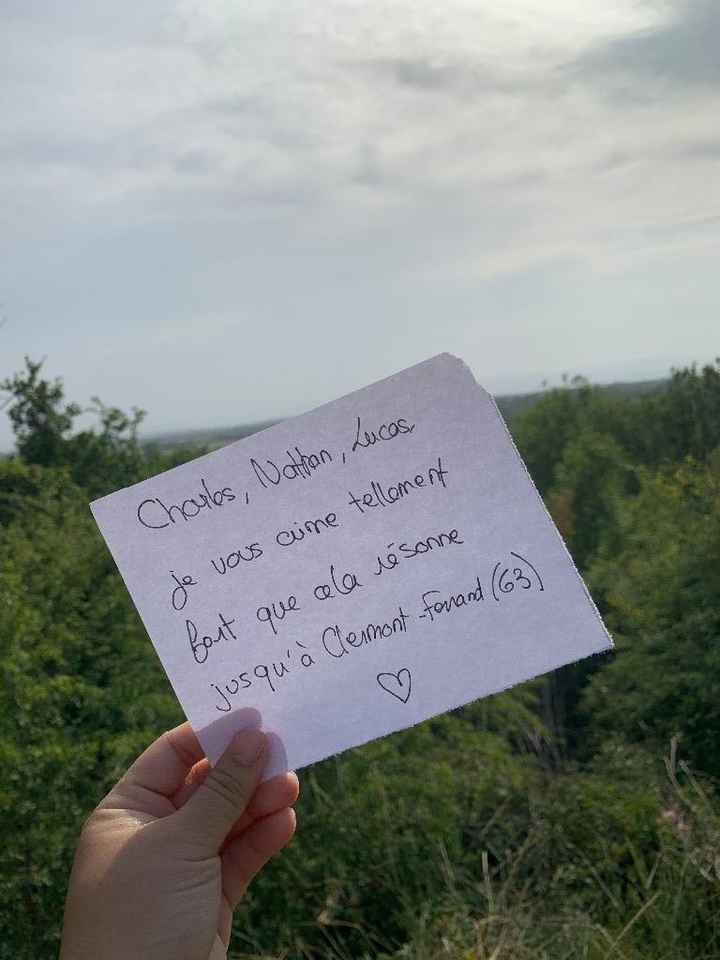 Charles, Nathan, Lucas,
je vous aime tellement
fort que cela résonne
jusqu'à Clermont-Ferrand (63)
♡